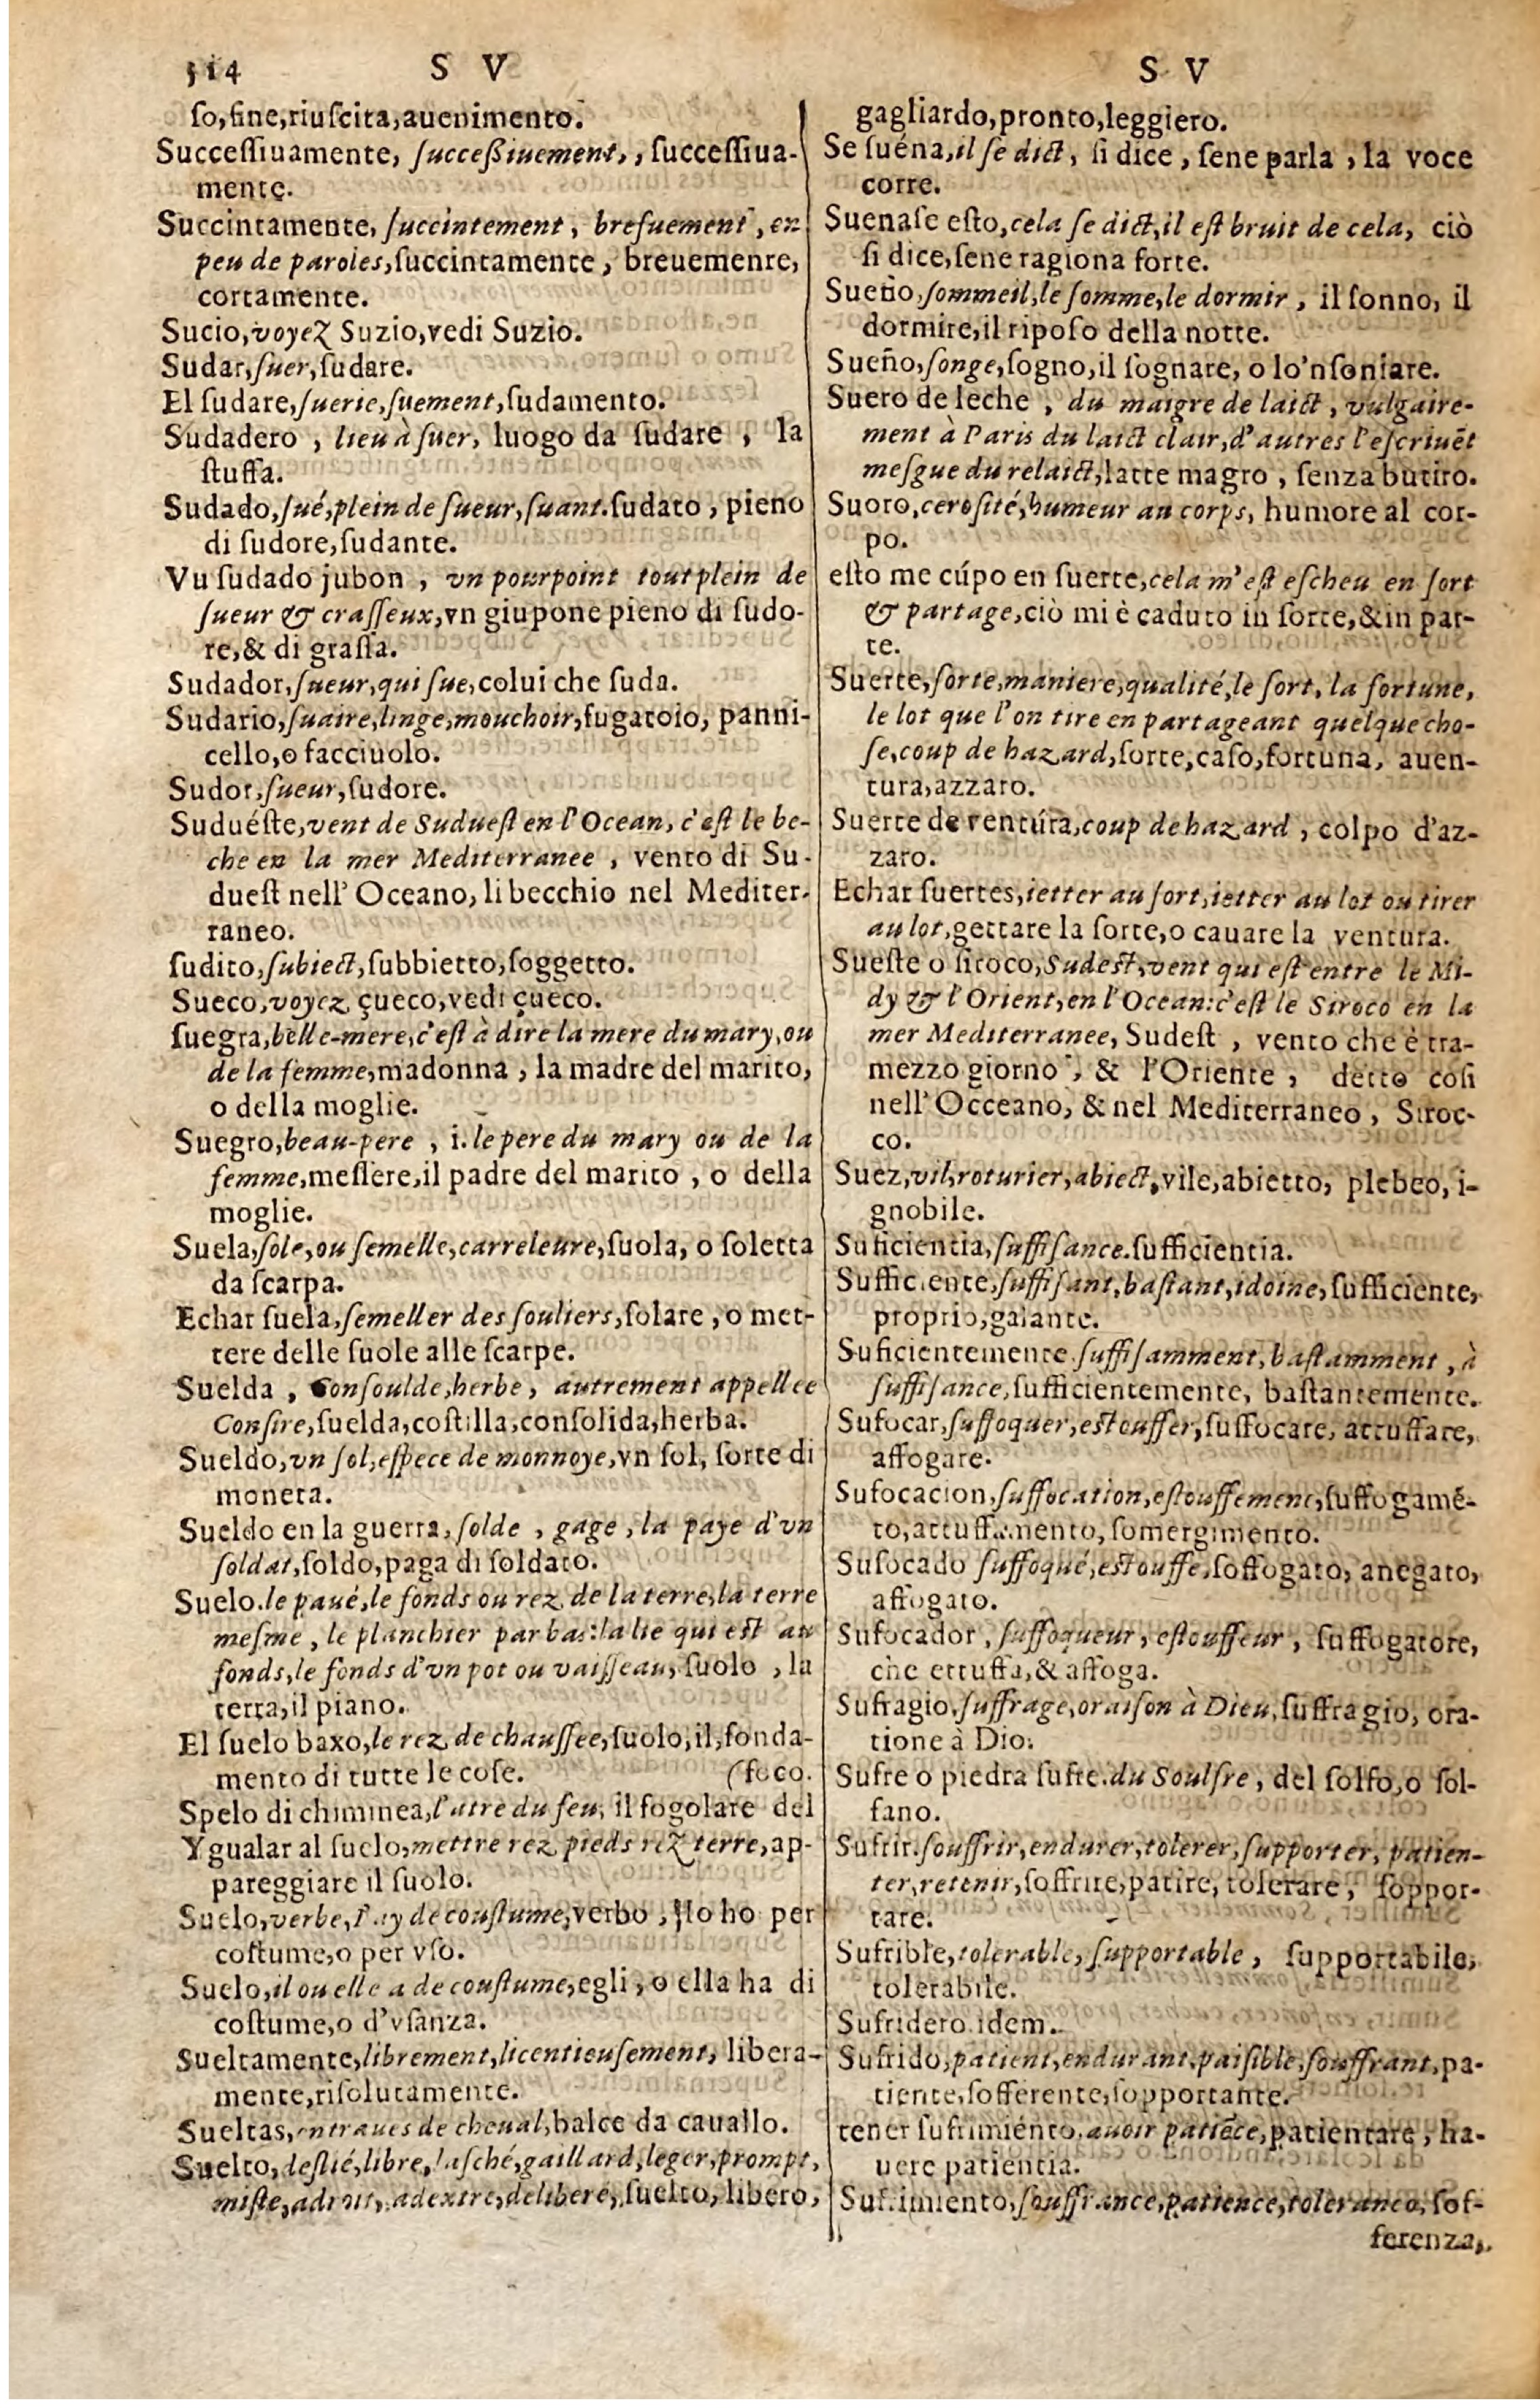 514 S V
ſo,fine,riuſcita,auenimento.
Succeſſiuamente, ſucceßiuement,, ſucceſſiua-
mente.
Succintamente, ſuccintement, brefuement, en
peu de paroles,ſuccintamente, breuemenre,
cortamente.
Sucio,voyez Suzio,vedi Suzio.
Sudar,ſuer,ſudare.
El ſudare,ſuerie,ſuement,ſudamento.
Sudadero, lieu à ſuer, luogo da ſudare, la
ſtuffa.
Sudado,ſué,plein de ſueur,ſuant.ſudato, pieno
di ſudore,ſudante.
Vu ſudado jubon, vn pourpoint tout plein de
ſueur & craſſeux,vn giupone pieno di ſudo-
re,& di graſſa.
Sudador,ſueur,qui ſue,colui che ſuda.
Sudario,ſuaire,linge,mouchoir,ſugatoio, panni-
cello,o facciuolo.
Sudor,ſueur,ſudore.
Suduéſte,vent de Sudueſt en l'Ocean, c'eſt le be-
che en la mer Mediterranee, vento di Su-
dueſt nell' Oceano, libecchio nel Mediter-
raneo.
ſudito,ſubiect,ſubbietto,ſoggetto.
Sueco,voyez çueco,vedi çueco.
ſuegra,belle-mere,c'eſt à dire la mere du mary,ou
de la femme,madonna, la madre del marito,
o della moglie.
Suegro,beau-pere, i. le pere du mary ou de la
femme,meſſere,il padre del marito, o della
moglie.
Suela,ſole,ou ſemelle,carreleure,ſuola, o ſoletta
da ſcarpa.
Echar ſuela,ſemeller des ſouliers,ſolare, o met-
tere delle ſuole alle ſcarpe.
Suelda, Conſoulde,herbe, autrement appellee
Conſire,ſuelda,coſtilla,conſolida,herba.
Sueldo,vn ſol,eſpece de monnoye,vn ſol, ſorte di
moneta.
Sueldo en la guerra, ſolde, gage, la paye d'vn
ſoldat,ſoldo,paga di ſoldato.
Suelo.le paué,le fonds ou rez de la terre,la terre
meſme, le planchier par bas:la lie qui eſt au
fonds,le fonds d'vn pot ou vaiſſeau, ſuolo, la
terra,il piano.
El ſuelo baxo,le rez de chauſſee,ſuolo,il,fonda-
mento di tutte le coſe. (foco.
Spelo di chiminea,l'atre du feu, il fogolare del
Ygualar al ſuelo,mettre rez pieds rez terre,ap-
pareggiare il ſuolo.
Suelo,verbe,I'ay de couſtume,verbo, Io ho per
coſtume,o per vſo.
Suelo,il ou elle a de couſtume,egli, o ella ha di
coſtume,o d'vſanza.
Sueltamente,librement,licentieuſement, libera-
mente,riſolutamente.
Sueltas,entraues de cheual,balce da cauallo.
Suelto, deſlié,libre,laſché,gaillard,leger,prompt,
miſte,adroit,adextre,deliberé,ſuelto, libero,
S V
gagliardo,pronto,leggiero.
Se ſuéna,il ſe dict, ſi dice, ſene parla, la voce
corre.
Suenaſe eſto,cela ſe dict,il eſt bruit de cela, ciò
ſi dice,ſene ragiona forte.
Sueño,ſommeil,le ſomme,le dormir, il ſonno, il
dormire,il ripoſo della notte.
Sueño,ſonge,ſogno,il ſognare, o lo'nſoniare.
Suero de leche, du maigre de laict, vulgaire-
ment à Paris du laict clair,d'autres l'eſcriuēt
meſgue du relaict,latte magro, ſenza butiro.
Suoro,ceroſité,humeur au corps, humore al cor-
po.
eſto me cúpo en ſuerte,cela m'eſt eſcheu en ſort
& partage,ciò mi è caduto in ſorte,&in par-
te.
Suerte,ſorte,maniere,qualité,le ſort, la fortune,
le lot que l'on tire en partageant quelque cho-
ſe,coup de hazard,ſorte,caſo,fortuna, auen-
tura,azzaro.
Suerte de ventúra,coup de hazard, colpo d'az-
zaro.
Echar ſuertes,ietter au ſort,ietter au lot ou tirer
au lot,gettare la ſorte,o cauare la ventura.
Sueſte o ſiroco,Sudeſt,vent qui eſt entre le Mi-
dy & l'Orient,en l'Ocean:c'eſt le Siroco en la
mer Mediterranee, Sudeſt, vento che è tra-
mezzo giorno, & l'Oriente, detto coſi
nell'Occeano, & nel Mediterraneo, Siroc-
co.
Suez,vil,roturier,abiect,vile,abietto, plebeo, i-
gnobile.
Suficientia,ſuffiſance.ſufficientia.
Sufficiente,ſuffiſant,baſtant,idoine,ſufficiente,
proprio,galante.
Suficientemente.ſuffiſamment,baſtamment, à
ſuffiſance,ſufficientemente, baſtantemente.
Sufocar,ſuffoquer,eſtouffer,ſuffocare, attuffare,
affogare.
Sufocacion,ſuffocation,eſtouffement,ſuffogamē-
to,attuffamento, ſomergimento.
Sufocado ſuffoqué,eſtouffé,ſoffogato, anegato,
affogato.
Sufocador, ſuffoqueur, eſtouffeur, ſuffogatore,
che ettuffa,& affoga.
Sufragio,ſuffrage,oraiſon à Dieu,ſuffragio, ora-
tione à Dio.
Sufre o piedra ſufre.du Soulfre, del ſolfo,o ſol-
fano.
Sufrir.ſouffrir,endurer,tolerer,ſupporter, patien-
ter,retenir,ſoffrire,patire, tolerare, ſoppor-
tare.
Sufrible,tolerable,ſupportable, ſupportabile,
tolerabile.
Sufridero.idem.
Sufrido,patient,endurant,paiſible,ſouffrant,pa-
tiente,ſofferente,ſopportante.
tener ſufrimiénto.auoir patiēce,patientare, ha-
uere patientia.
Sufrimiento,ſouffrance,patience,tolerance,ſof-
ferenza,